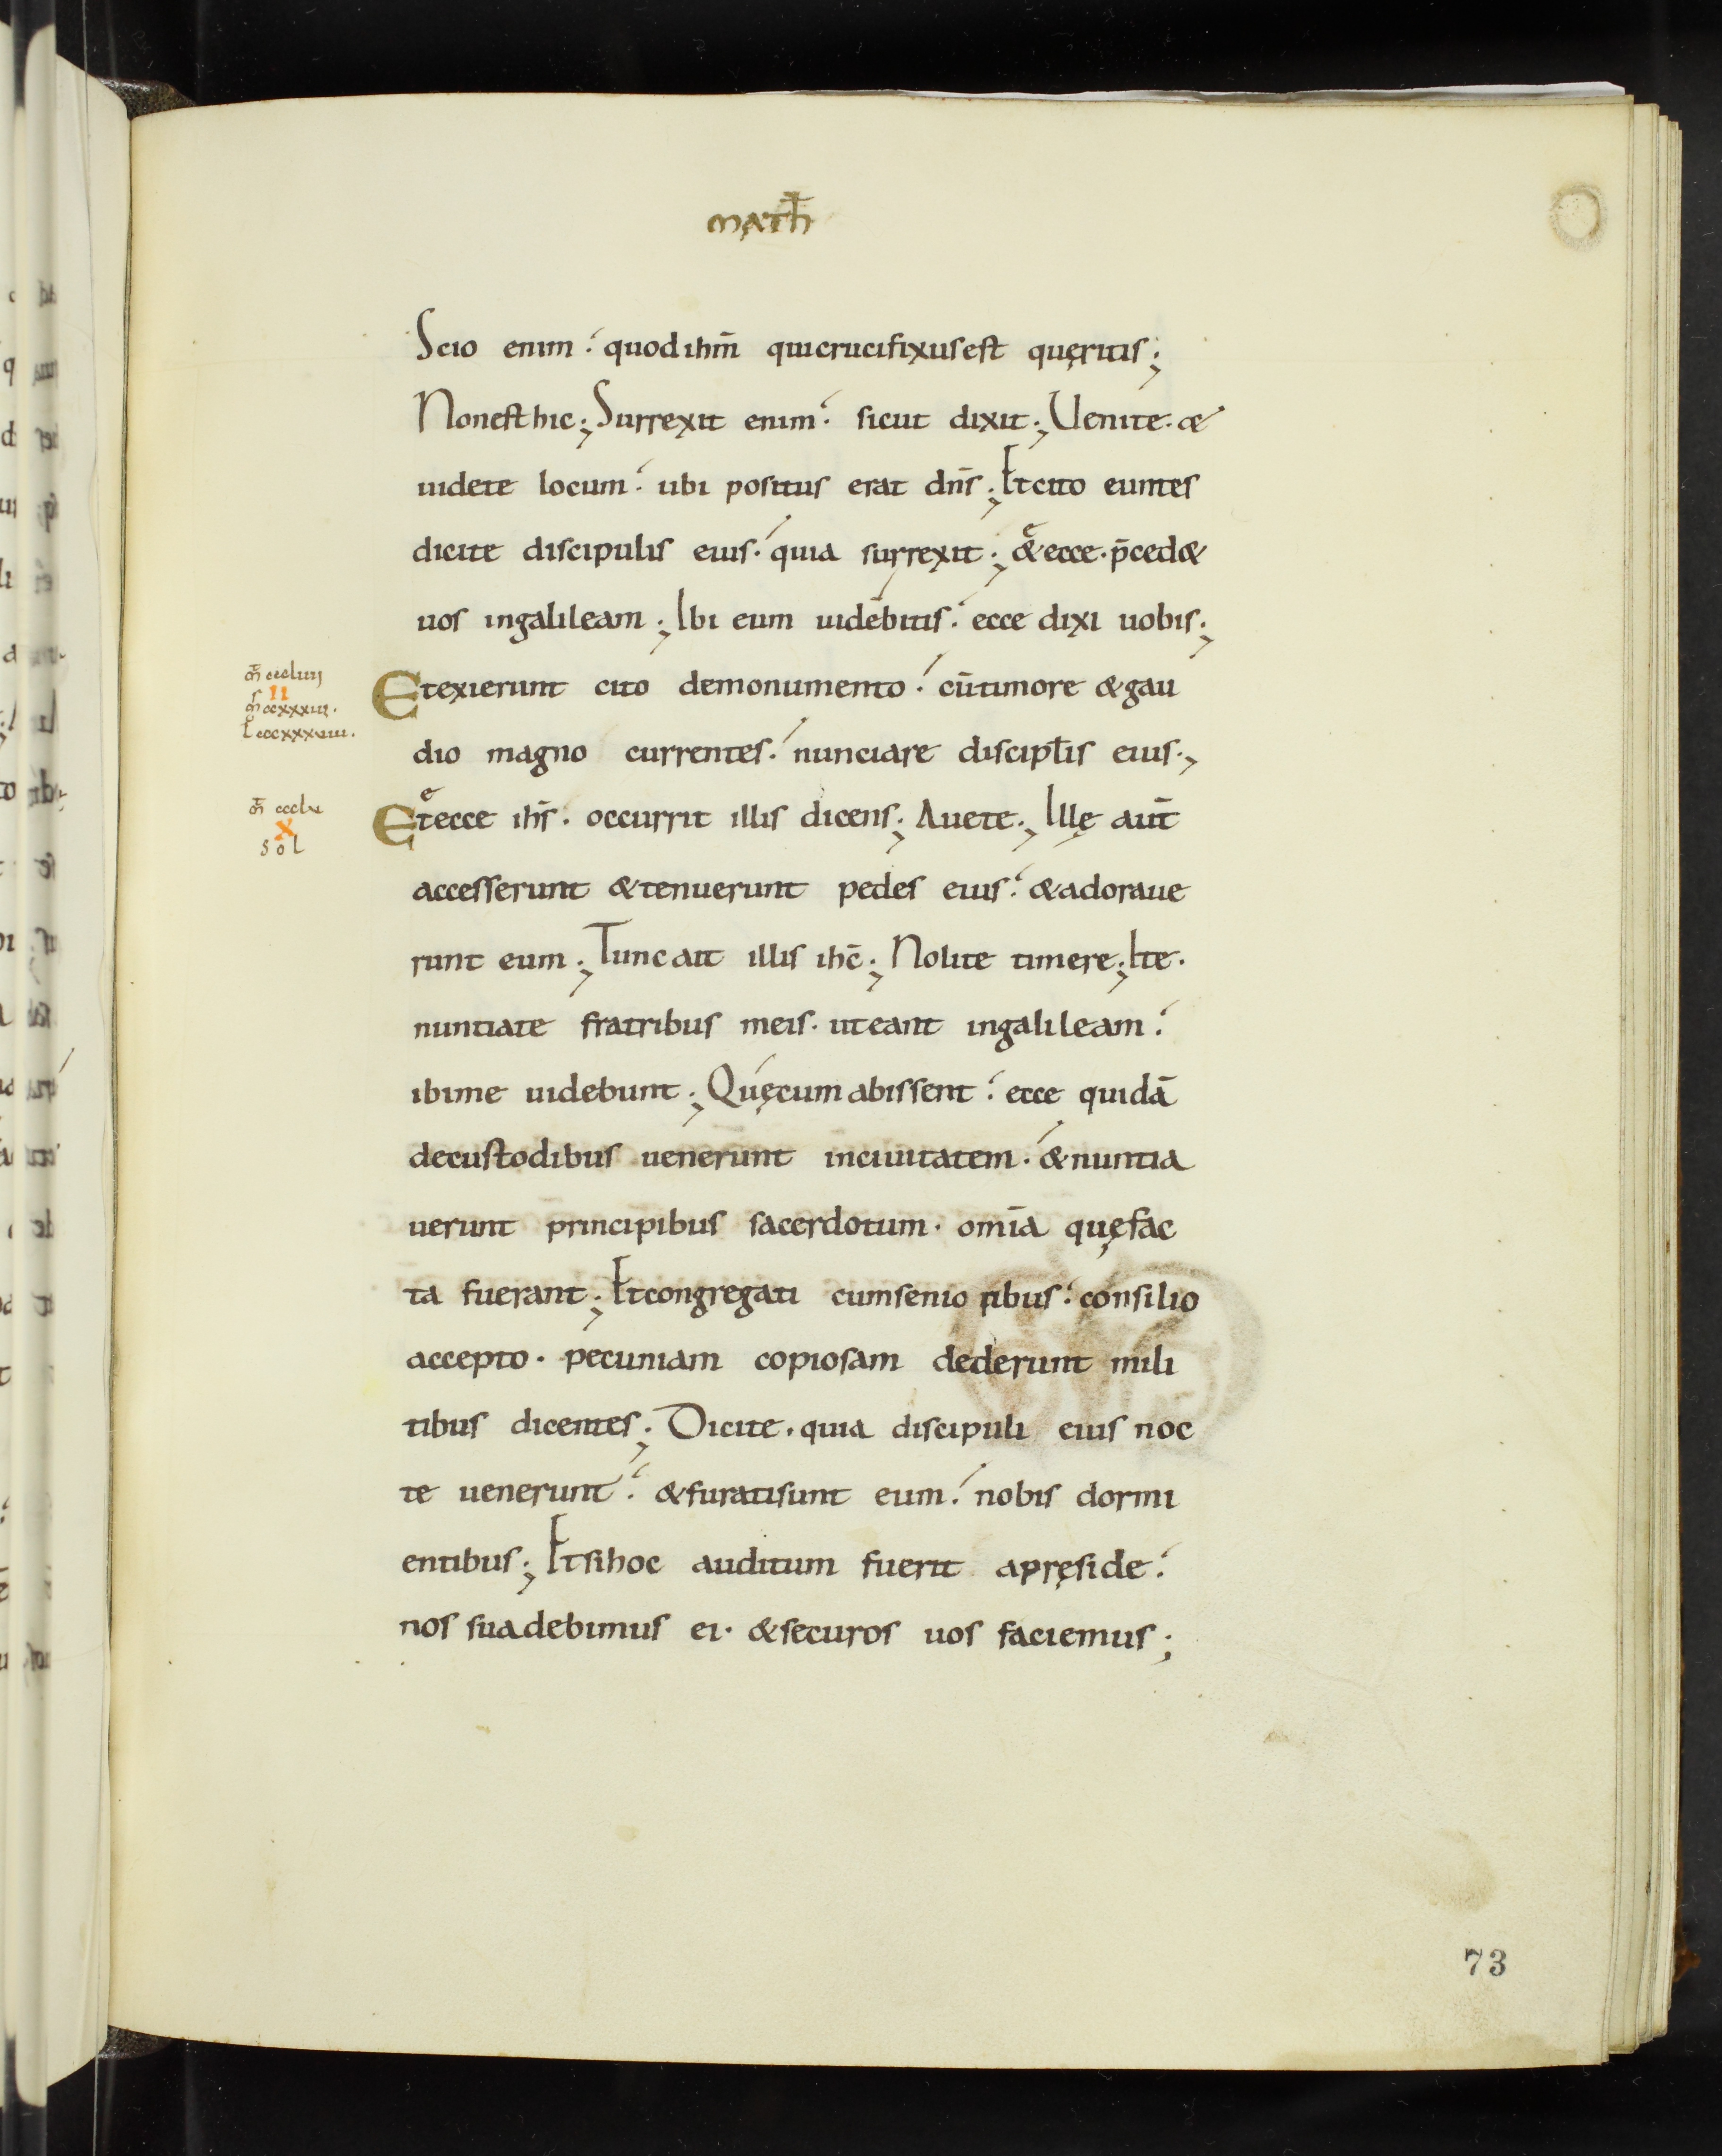 math̄
Scio enim quod ihm̄ qui crucifixus est quęritis;
Non est hic; Surrexit enim sicut dixit; Uenite. &
uidete locum ubi positus erat dn̄s; Et cito euntes
dicite discipulis eius. quia surrexit; & ecce. p̄ced&
uos in galileam; Ibi eum uidebitis. ecce dixi uobis;
m̄ cccliiij
Et exierunt cito de monumento. cū timore & gau
II
m̄ ccxxxiii.
l cccxxxviii.
dio magno currentes. nunciare discipl̄is eius;
m̄ ccclv
Et ecce ih̄s. occurrit illis dicens; Auete; Illę aut̄
X
sol
accesserunt & tenuerunt pedes eius. & adoraue
runt eum; Tunc ait illis ihc̄; Nolite timere; Ite.
nuntiate fratribus meis. ut eant in galileam.
ibi me uidebunt; Quę cum abissent. ecce quidā
de custodibus uenerunt in ciuitatem. & nuntia
uerunt principibus sacerdotum. omīa quę fac
ta fuerant; Et congregati cum senioribus. consilio
accepto. pecuniam copiosam dederunt mili
tibus dicentes; Dicite. quia discipuli eius noc
te uenerunt. & furati sunt eum. nobis dormi
entibus; Et si hoc auditum fuerit a pręside.
nos suadebimus ei. & securos uos faciemus;
73